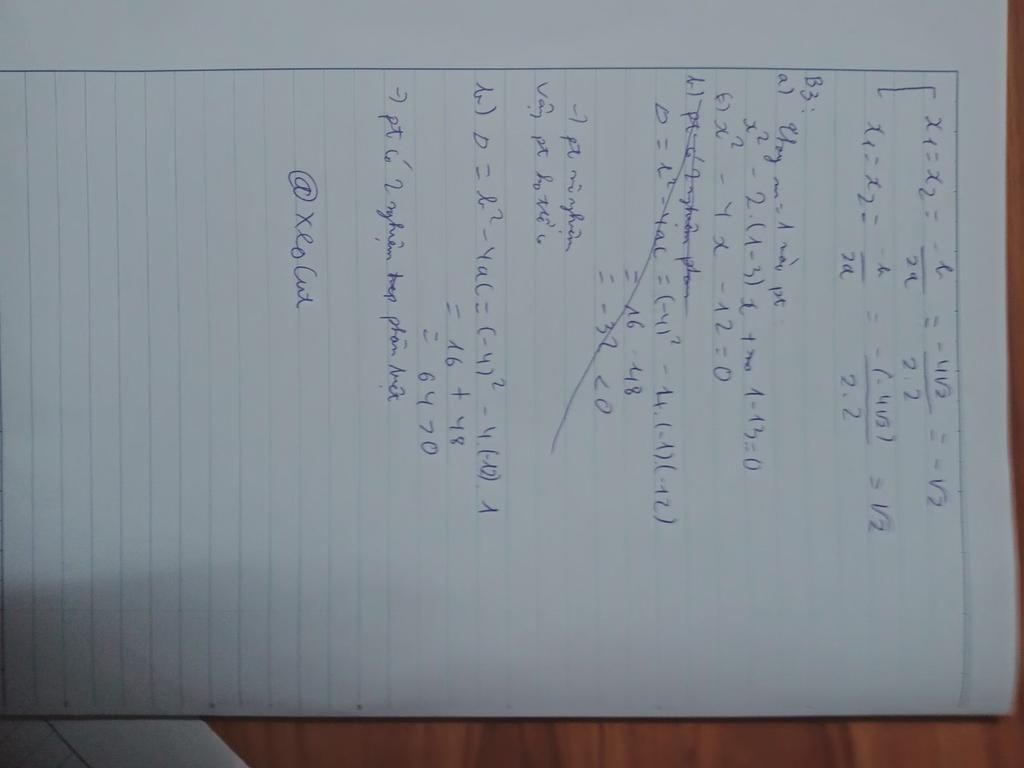 x1 = x2 = -b/2a = -4√2/2.2 = -√2
x1 = x2 = -b/2a = -(-4√2)/2.2 = √2
B3:
a) Thay m = 1 vào pt:
x² - 2.(1-3)x + 1-13=0
x² - 4x - 12 = 0
b) pt có 2 nghiệm phân
Δ = b² - 4ac = (-4)² - 4.(-1)(-12)
= 16 - 48
= -32 < 0
→ pt vô nghiệm
Vậy pt
b) Δ = b² - 4ac = (-4)² - 4(-12).1
= 16 + 48
= 64 > 0
→ pt có 2 nghiệm phân biệt
@xeoCut